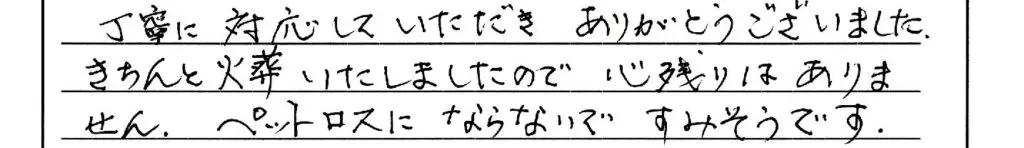 丁寧に対応していただき ありがとうございました.
きちんと火葬いたしましたので 心残りは ありま
せん. ペットロスに ならないで すみそうです.